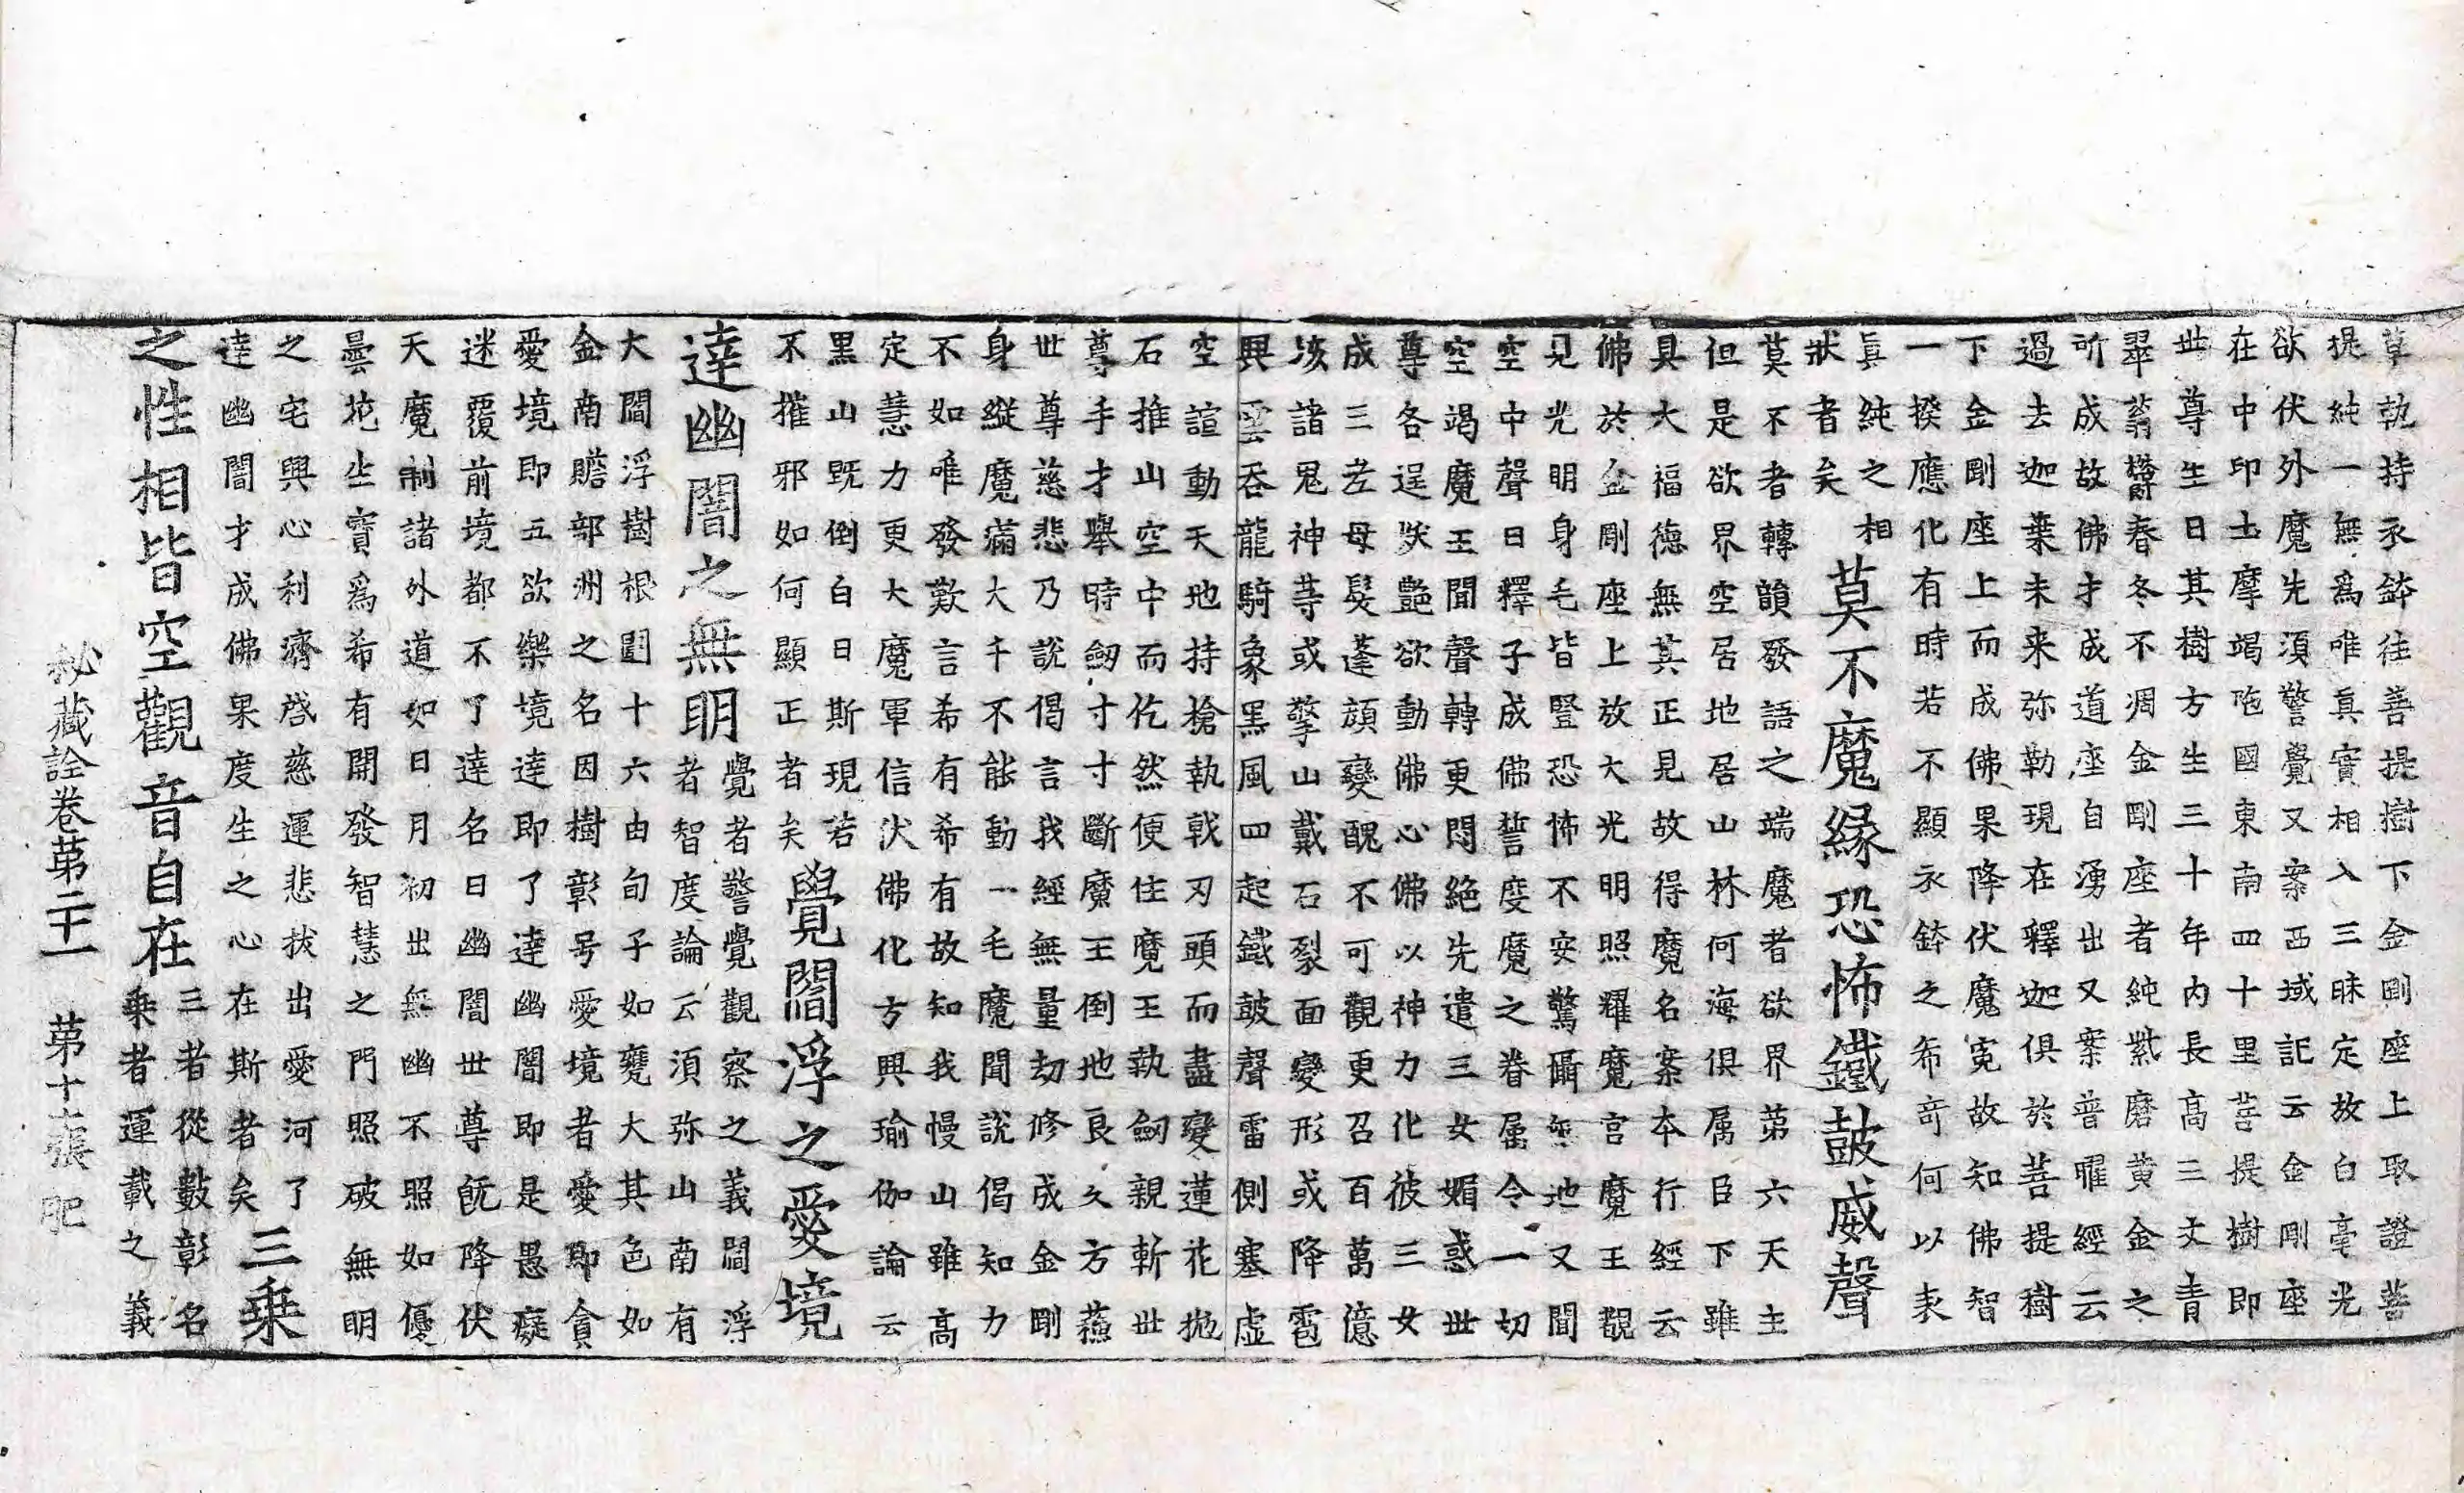 草執持衣鉢往菩提樹下金剛座上取證菩
提純一無爲唯眞實相入三昧定故白毫光
欲伏外魔先須警覺又案西域記云金剛座
在中印土摩竭陁國東南四十里菩提樹即
世尊生日其樹方生三十年內長高三丈青
翠蓊欝春冬不凋金剛座者純紫磨黃金之
所成故佛才成道座自湧出又案普曜經云
過去迦葉未来弥勒現在釋迦俱於菩提樹
下金剛座上而成佛果降伏魔寃故知佛智
一揆應化有時若不顯衣鉢之希竒何以表
眞純之相
狀者矣
莫不魔緣恐怖鐵鼓威聲
莫不者轉韻發語之端魔者欲界第六天主
但是欲界空居地居山林何海俱属臣下雖
具大福德無其正見故得魔名案本行經云
佛於金剛座上放大光明照耀魔宮魔王覩
見光明身毛皆豎恐怖不安驚躡無地又聞
空中聲曰釋子成佛誓度魔之眷属令一切
空竭魔王聞聲轉更悶絶先遣三女媚惑世
尊各逞妖艶欲動佛心佛以神力化彼三女
成三老母髮蓬頭變醜不可觀更召百萬億
垓諸鬼神等或擎山戴石裂面變形或降雹
興雲呑龍騎象黑風四起鐵皷聲雷側塞虛
空諠動天地持槍執戟刃頭而盡變蓮花拋
石推山空中而仡然便住魔王執劒親斬世
尊手才擧時劒寸寸斷魔王倒地良久方蘓
世尊慈悲乃說偈言我經無量劫修成金剛
身縱魔滿大千不能動一毛魔聞說偈知力
不如唯發歎言希有希有故知我慢山雖高
定慧力更大魔軍信伏佛化方興瑜伽論云
黑山既倒白日斯現若
不摧邪如何顯正者矣
覺閻浮之愛境
達幽闇之無明
覺者警覺觀察之義閻浮
者智度論云須弥山南有
大閻浮樹根圍十六由旬子如甕大其色如
金南贍部洲之名因樹彰号愛境者愛即貪
愛境即五欲樂境達即了達幽闇即是愚癡
迷覆前境都不了達名曰幽闇世尊旣降伏
天魔制諸外道如日月初出無幽不照如優
曇花生實爲希有開發智慧之門照破無明
之宅興心利濟啓慈運悲拔出愛河了
達幽闇才成佛果度生之心在斯者矣
三乗
之性相皆空觀音自在
三者從數彰名
乗者運載之義
秘藏詮卷第二十一 第十二張 肥